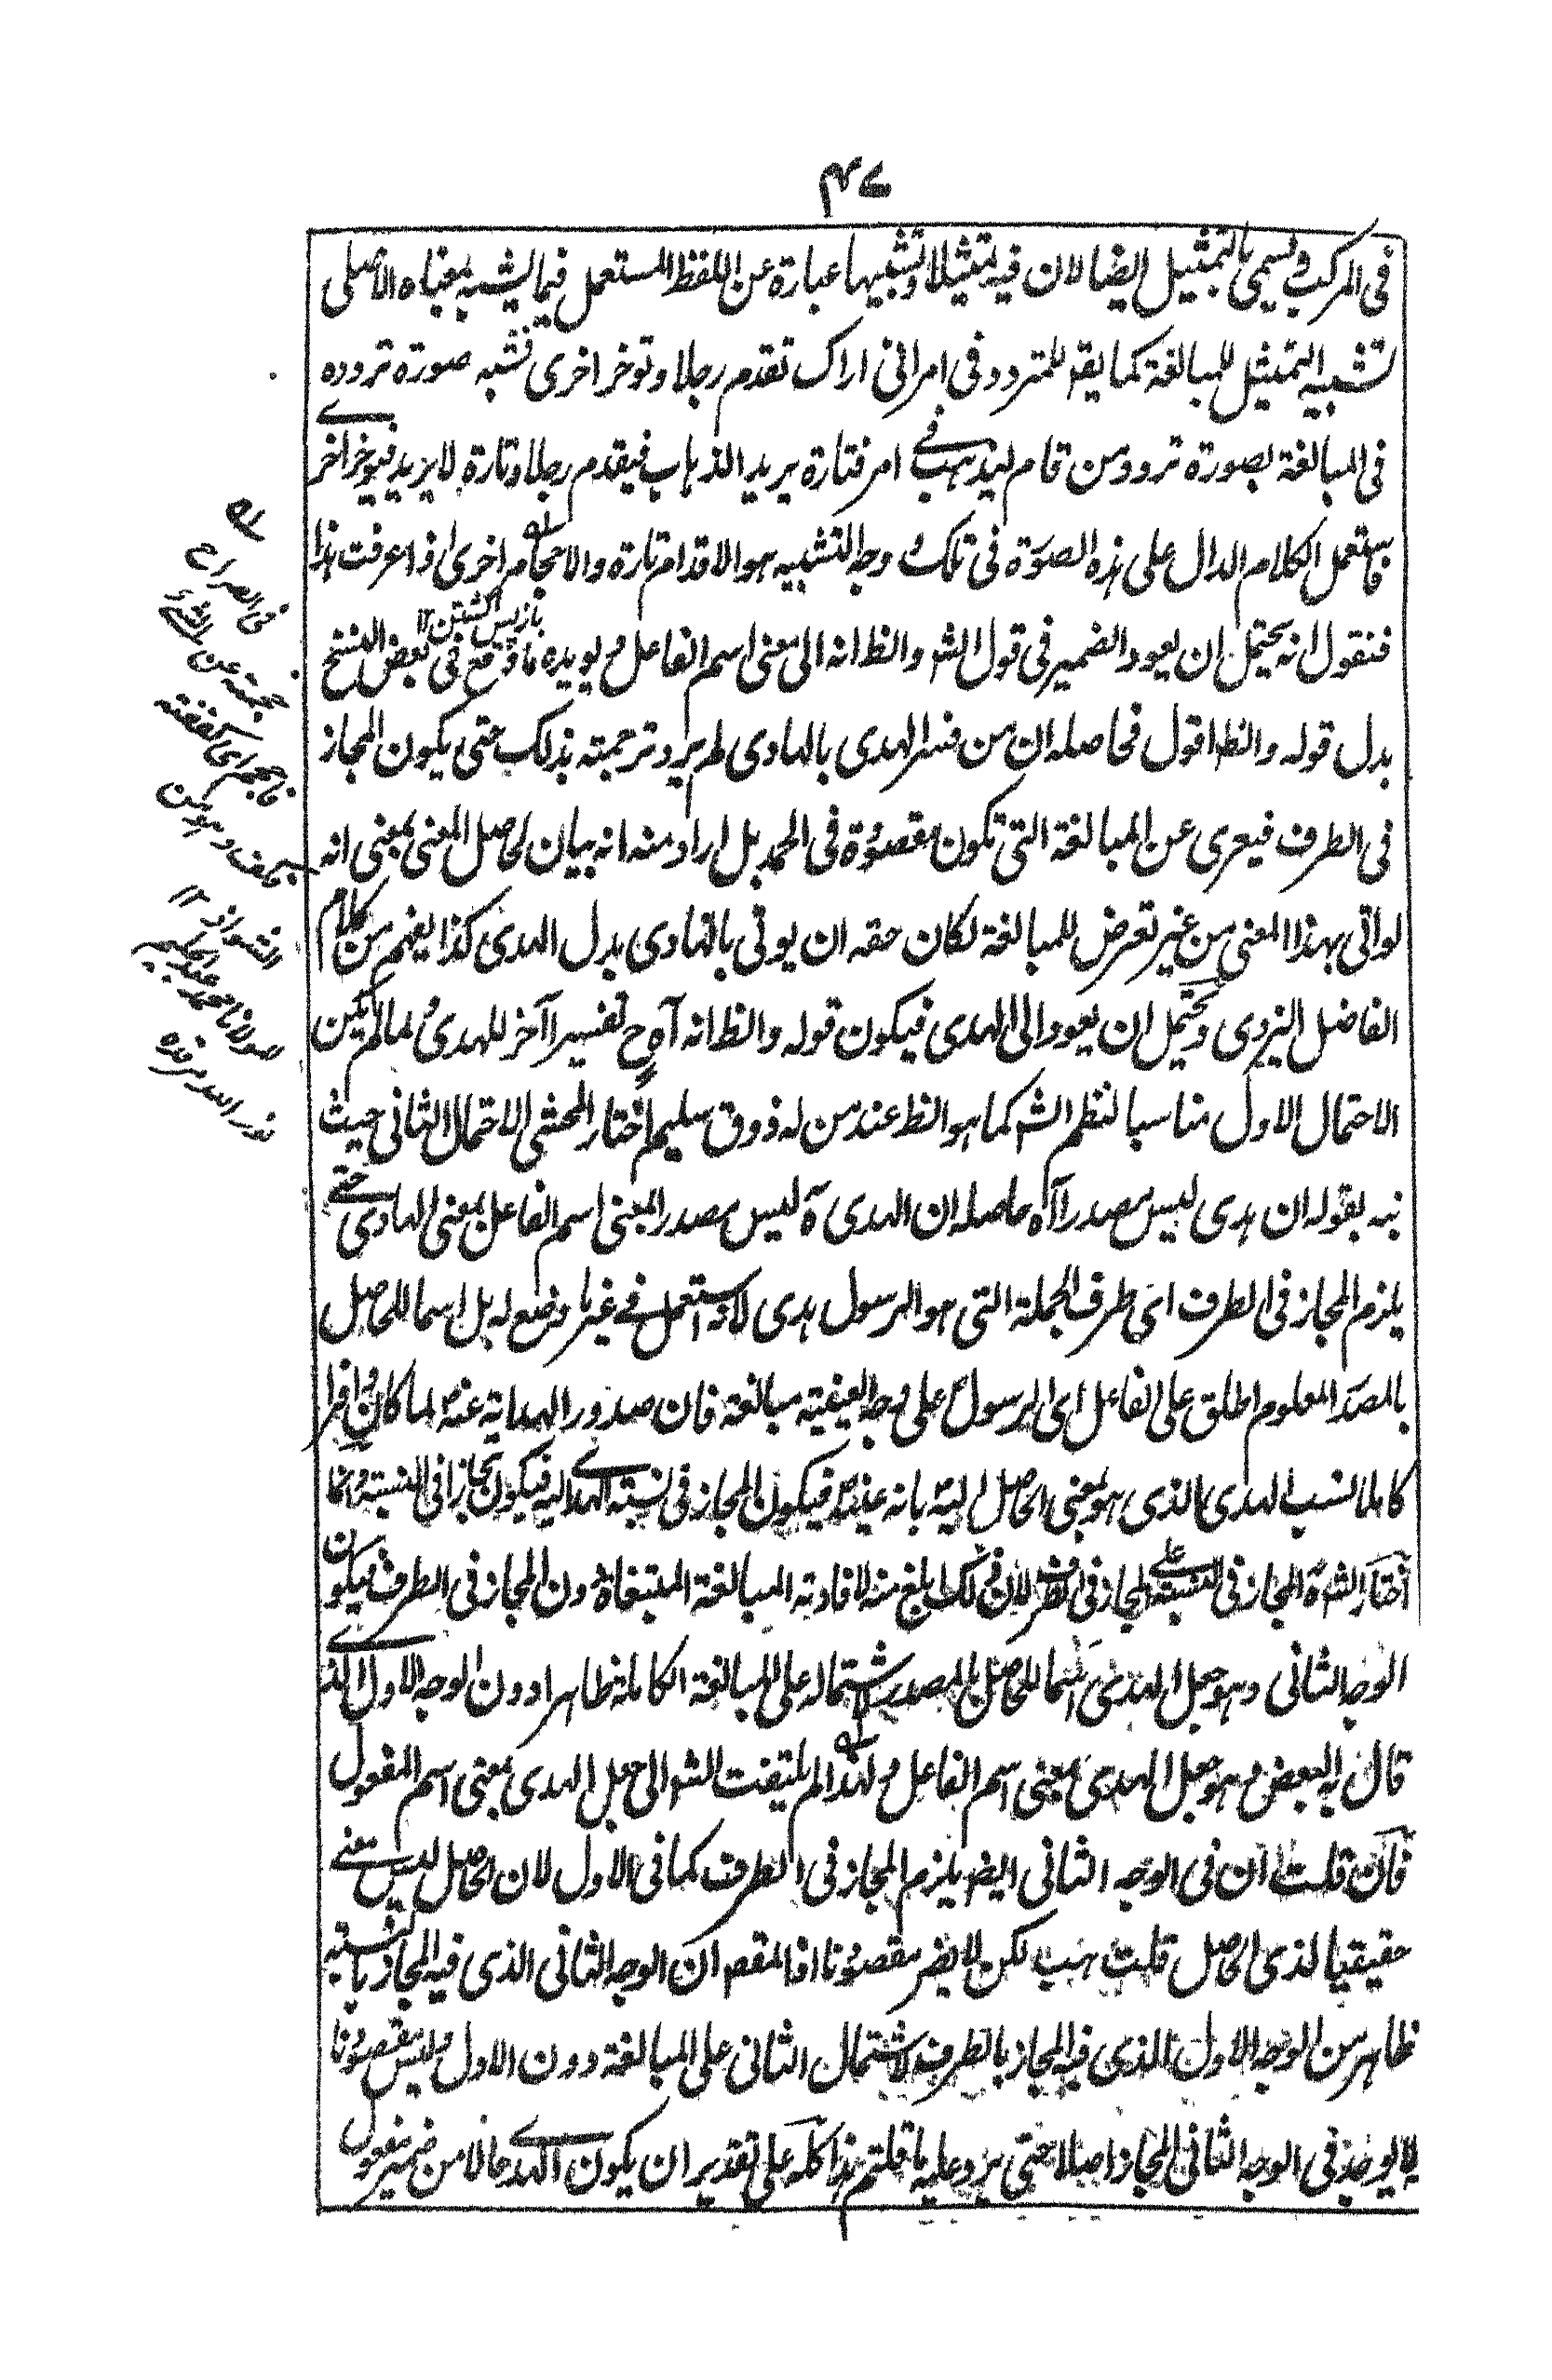 ٤٧
فى المركب ويسمى بالتمثيل ايضا لان فيه تمثيلا وتشبيها عبارة عن اللفظ المستعمل فيما يشبه بمعناه الاصلى
تشبيه التمثيل للمبالغة كما يقـ للمتردد فى امر انى اراك تقدم رجلا وتؤخر اخرى نشبه صورة تردده
فى المبالغة بصورة تردد من قام ليذهب فى امر فتارة يريد الذهاب فيقدم رجلا وتارة لا يريد فيؤخر اخرى
فاستعمل الكلام الدال على هذه الصورة فى تلك و وجه التشبيه هو الاقدام تارة والاحجام اخرى اذا عرفت هذا
باز پس گشتن ١٢
فنقول انه يحتمل ان يعود الضمير فى قول الشـ والظ انه الى معنى اسم الفاعل ويويده ما وقع فى بعض النسخ
بدل قوله والظ اقول فحاصله ان من فسر الهدى بالهادى لم يرد ترجمته بذلك حتى يكون المجاز
فى الطرف فيعرى عن المبالغة التى تكون مقصودة فى الحمد بل اراد منه انه بيان لحاصل المعنى بمعنى انه
لو اتى بهذا المعنى من غير تعرض للمبالغة لكان حقه ان يوتى بالهادى بدل الهدى كذا يفهم من كلام
الفاضل اليزدى ويحتمل ان يعود الى الهدى فيكون قوله والظ انه آه ح تفسيرا آخر للهدى ولما لم يكن
الاحتمال الاول مناسبا لنظم الشـ كما هو الظ عند من له ذوق سليم اختار المحشى الاحتمال الثانى حيث
نبه بقوله ان هدى ليس مصدرا آه حاصله ان الهدى ة ليس مصدرا بمعنى اسم الفاعل بمعنى الهادى حتى
يلزم المجاز فى الطرف اى طرف الجملة التى هو الرسول هدى لانه استعمل فى غير ما وضع له بل اسما للحاصل
بالمصدر المعلوم اطلق على الفاعل اى الرسول على وجه العينية مبالغة فان صدور الهداية عنه لما كان وافرا
كاملا نسب الهدى الذى هو بمعنى الحاصل اليه بانه عينه فيكون المجاز فى نسبة الهدى اليه فيكون مجازا فى النسبة وانما
اختار الشـ ة المجاز فى النسبة على المجاز فى الطرف لان ذلك ابلغ منه لافادته المبالغة المبتغاة دون المجاز فى الطرف فيكون
الوجه الثانى وهو جعل الهدى اسما للحاصل بالمصدر لاشتماله على المبالغة الكاملة ظاهرا دون الوجه الاول الذى
قال به البعض وهو جعل الهدى بمعنى اسم الفاعل ولهذا لم يلتفت الشـ الى جعل الهدى بمعنى اسم المفعول
فان قلت ان فى الوجه الثانى ايضـ يلزم المجاز فى الطرف كما فى الاول لان الحاصل ليس معنى
حقيقيا لذى الحاصل قلت هب لكن لا يضر مقصودنا اذ المقصـ ان الوجه الثانى الذى فيه المجاز بالنسبة
ظاهر من الوجه الاول الذى فيه المجاز بالطرف لاشتمال الثانى على المبالغة دون الاول وليس مقصودنا
لا يوجد فى الوجه الثانى المجاز اصلا حتى يرد عليه ما قلتم هذا كله على تقدير ان يكون الهدى حالا من ضمير مفعول
فى الصراح
حجمته عن الشئ
فاحجم اى كففته
فكف وهو من
النوادر ١٢
مولانا محمد عبد الحليم
نور الله مرقده